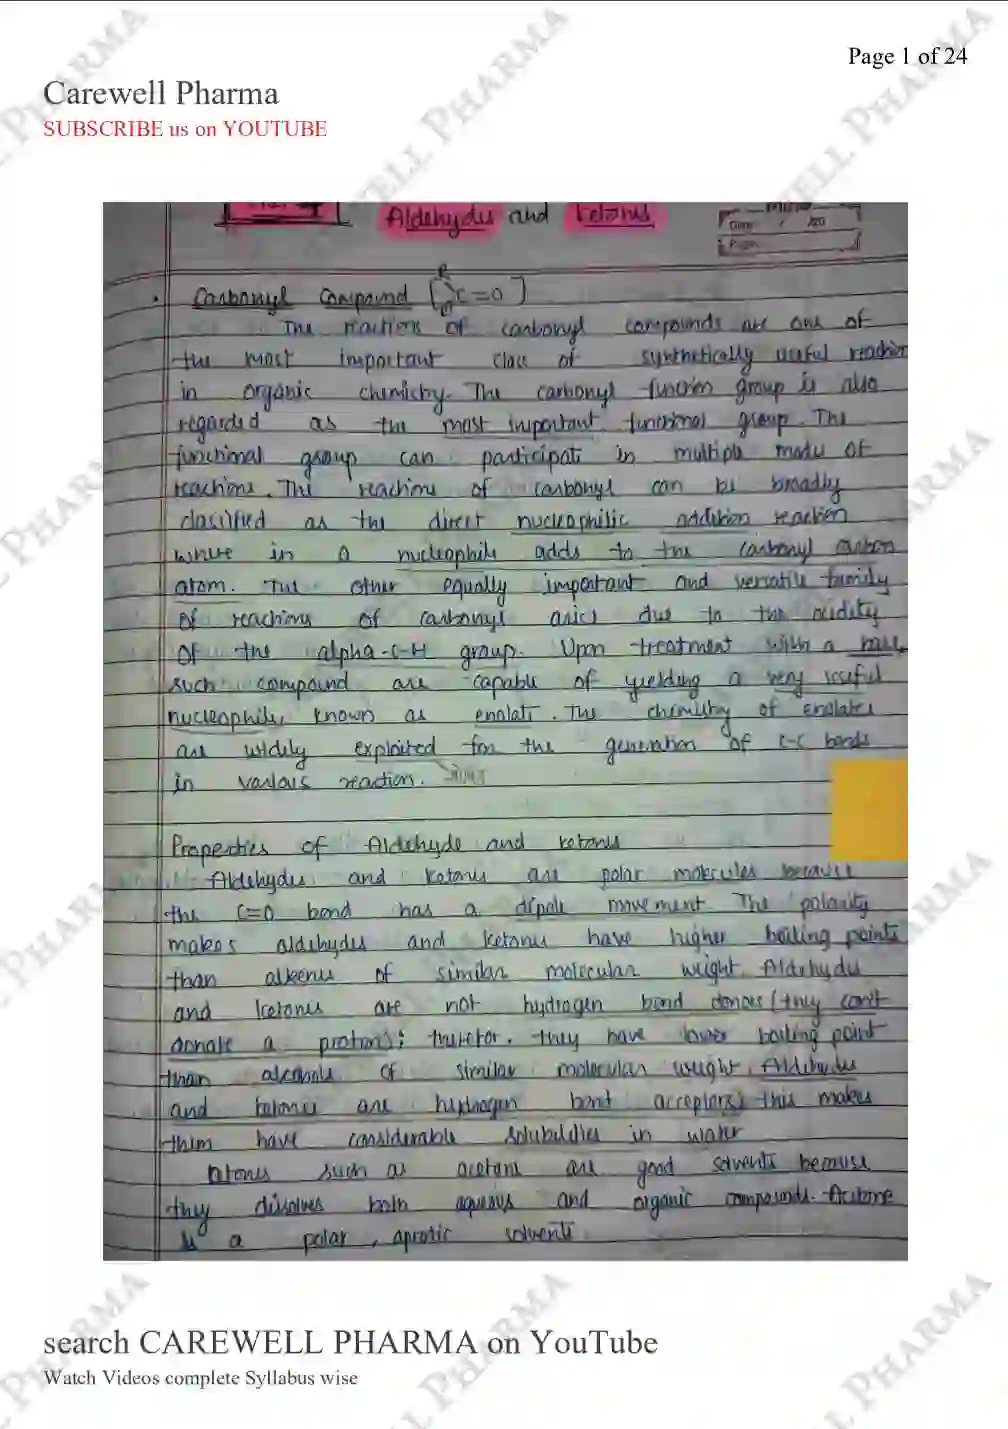 Page 1 of 24
Carewell Pharma
SUBSCRIBE us on YOUTUBE
Aldehydes and Ketones
Date / /20
Page
Carbonyl Compound [ C=O ]
The reactions of carbonyl compounds are one of
the most important class of synthetically useful reaction
in organic chemistry. The carbonyl function group is also
regarded as the most important functional group. The
functional group can participate in multiple modes of
reactions. The reactions of carbonyl can be broadly
classified as the direct nucleophilic addition reaction
where in a nucleophile adds to the carbonyl carbon
atom. The other equally important and versatile family
of reactions of carbonyl arises due to the acidity
of the alpha-C-H group. Upon treatment with a base,
such compound are capable of yielding a very useful
nucleophile, known as enolate. The chemistry of enolates
are widely exploited for the generation of C-C bonds
in various reaction.
Properties of Aldehyde and ketones
Aldehydes and ketones are polar molecules because
the C=O bond has a dipole movement. The polarity
makes aldehydes and ketones have higher boiling points
than alkenes of similar molecular weight. Aldehydes
and ketones are not hydrogen bond donors (they can't
donate a proton); therefor, they have lower boiling point
than alcohols of similar molecular weight. Aldehydes
and ketones are hydrogen bond acceptors; this makes
them have considerable solubilities in water
Ketones such as acetone are good solvents because
they dissolves both aqueous and organic compounds. Acetone
is a polar, aprotic solvents.
search CAREWELL PHARMA on YouTube
Watch Videos complete Syllabus wise